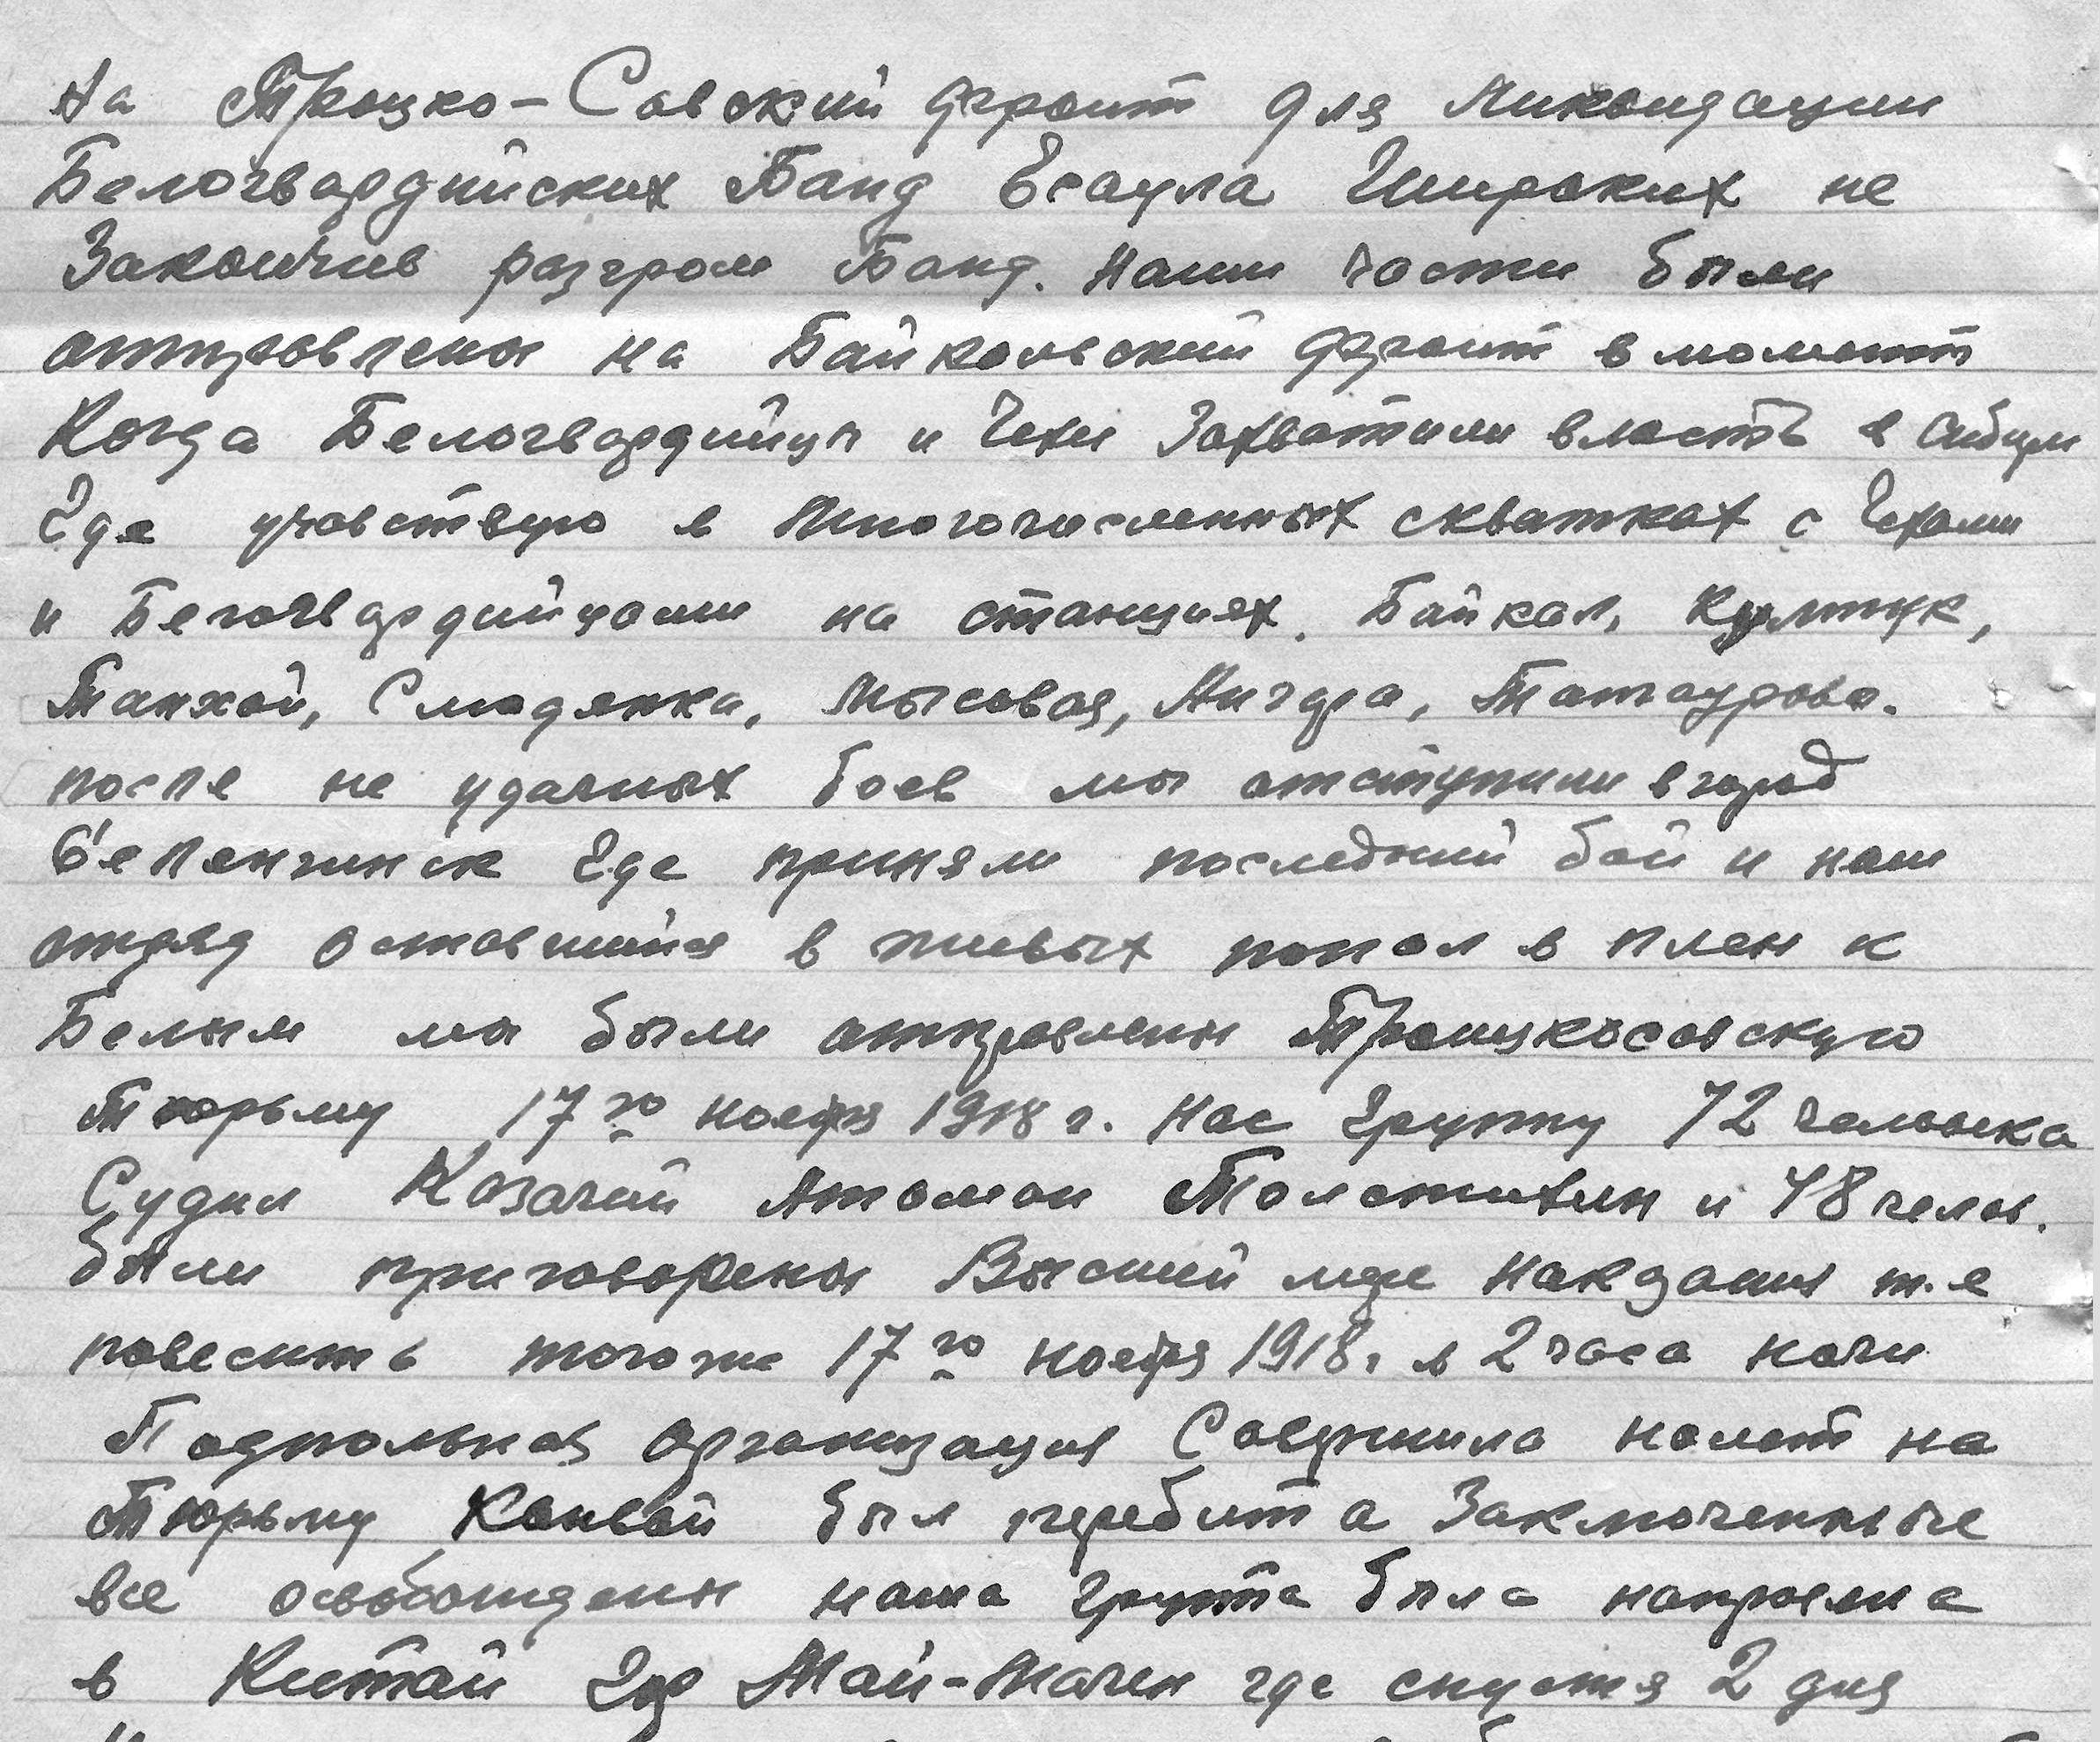 на Троцко-Савский фронт для Ликвидации
Белогвардийских Банд Есаула Широких не
Закончив разгром Банд. Наши части были
отправлены на Байкальский фронт в моментт
Когда Белогвардийцы и Чехи Захватили власть в Сибири
Где участвую в Многочисленных схватках с Чехами
и Белогвардийцами на станциях. Байкал, Култук,
Танхой, Слюдянка, Мысовая, Ангара, Татаурово.
после не удачных боев мы отступили в город
Селенгинск Где приняли последний бой и наш
отряд оставшийся в живых попал в плен к
Белым мы были отправлены Троицкосавскую
Тюрьму 17го ноября 1918 г. Нас Группу 72 человека
Судил Казачий Атаман Толстихин и 48 челов.
были приговорены Высшей мере Накзания т.е
повесить тогоже 17го ноября 1918г в 2 часа ночи
Подпольная организация Совершила налет на
Тюрьму Конвой был перебит а Заключенные
все освобождены наша Группа была направлена
в Китай Гор Май-Мачен где спустя 2 дня